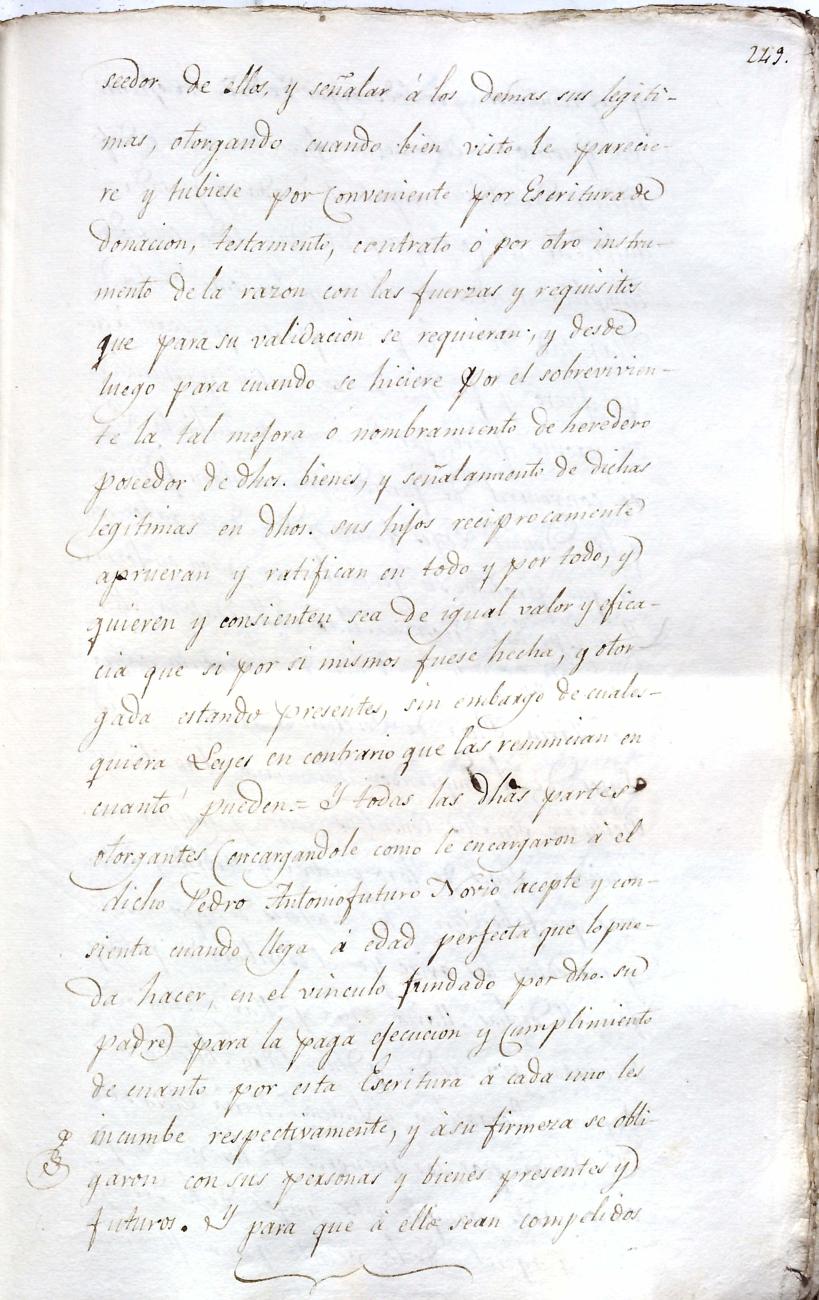 229.
seedor de ellos, y señalar á los demas sus legiti-
mas, otorgando cuando bien visto le parecie-
re y tubiese por Conveniente por Escritura de
Donacion, testamento, contrato ó por otro instru-
mento de la razon con las fuerzas y requisitos
que para su validacion se requieran; y desde
luego para cuando se hiciere por el sobrevivien-
te la tal mejora ó nombramiento de heredero
poseedor de dhos. bienes, y señalamiento de dichas
legitimas en dhos. sus hijos reciprocamente
apruevan y ratifican en todo y por todo, y
quieren y consienten sea de igual valor y efica-
cia que si por si mismos fuese hecha, y otor-
gada estando presentes, sin embargo de cuales-
quiera Leyes en contrario que las renuncian en
cuanto pueden = Y todas las dhas partes
otorgantes (encargandole como le encargaron á el
dicho Pedro Antonio futuro Novio acepte y con-
sienta cuando llega á edad perfecta que lo pue-
da hacer, en el vinculo fundado por dho. su
padre) para la paga ejecucion y Cumplimiento
de cuanto por esta Escritura á cada uno les
incumbe respectivamente, y á su firmeza se obli-
garon con sus personas y bienes presentes y
futuros. Y para que á ello sean compelidos